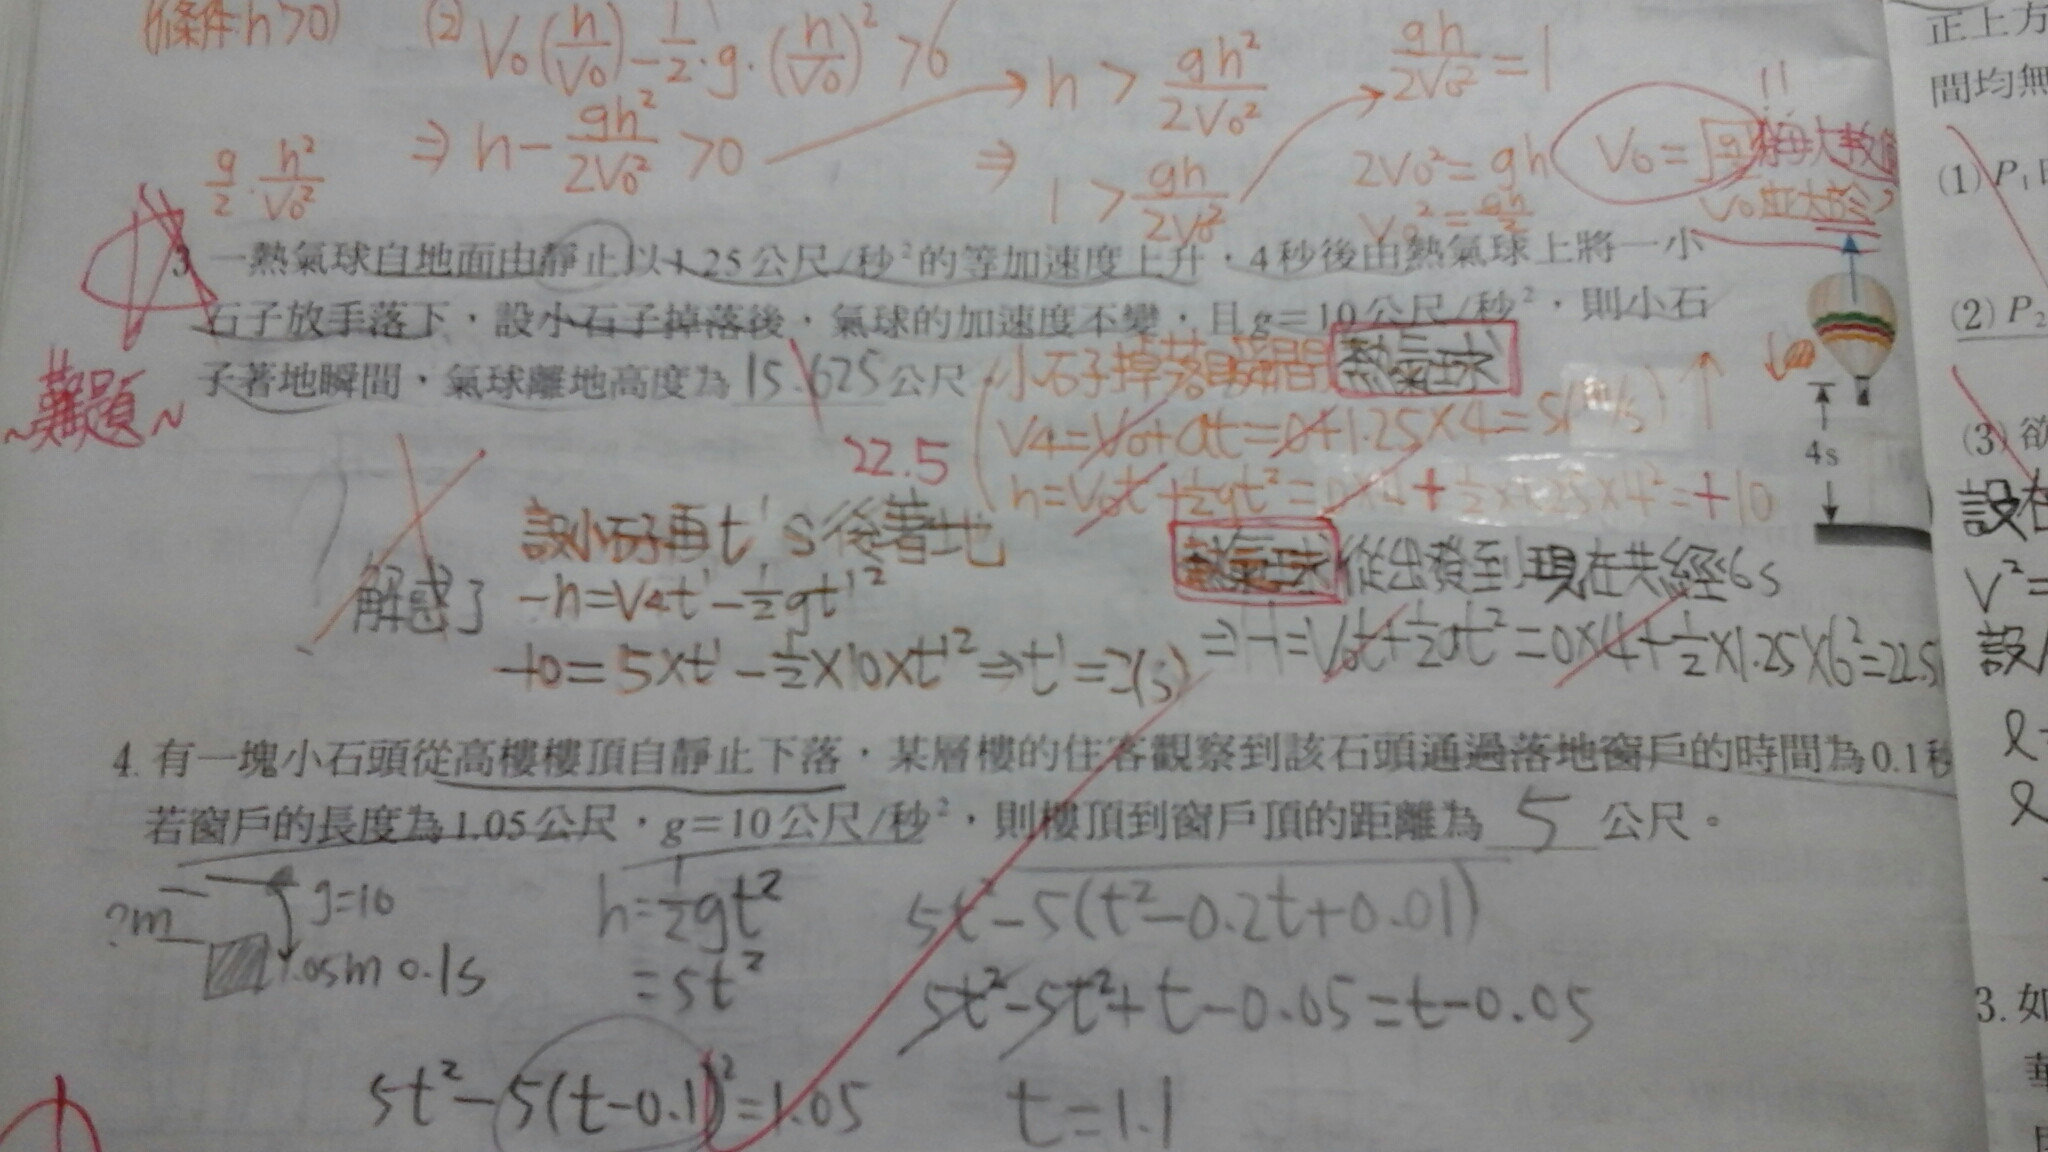 (條件:h>0)
(2) V₀(h/V₀)-1/2·g·(h/V₀)²>0
⇒ h-gh²/2V₀²>0
h>gh²/2V₀²
⇒ 1>gh/2V₀²
gh/2V₀²=1
2V₀²=gh
V₀²=gh/2
V₀=
!!
g/2·h²/V₀²
3. 一熱氣球自地面由靜止以1.25公尺/秒²的等加速度上升，4秒後由熱氣球上將一小
石子放手落下，設小石子掉落後，氣球的加速度不變，且g=10公尺/秒²，則小石
子著地瞬間，氣球離地高度為15.625公尺
22.5
~難題~
小石子掉落瞬間 熱氣球
V4=V₀+at=0+1.25×4=5(m/s)↑
h=V₀t+1/2gt²=0×4+1/2×1.25×4²=+10
4s
解惑了
設小石子再t's後著地
-h=V4t'-1/2gt'²
-10=5×t'-1/2×10×t'²⇒t'=2(s)
熱氣球從出發到現在共經6s
⇒H=V₀t+1/2at²=0×4+1/2×1.25×6²=22.5
4. 有一塊小石頭從高樓樓頂自靜止下落，某層樓的住客觀察到該石頭通過落地窗戶的時間為0.1秒
若窗戶的長度為1.05公尺，g=10公尺/秒²，則樓頂到窗戶頂的距離為5公尺。
?m
g=10
1.05m 0.1s
h=1/2gt²
=5t²
5t²-5(t-0.1)²=1.05
5t²-5(t²-0.2t+0.01)
5t²-5t²+t-0.05=t-0.05
t=1.1
正上方
間均無
(1) P₁
(2) P₂
(3) 欲
設在
V²=
設
l
l
3. 如